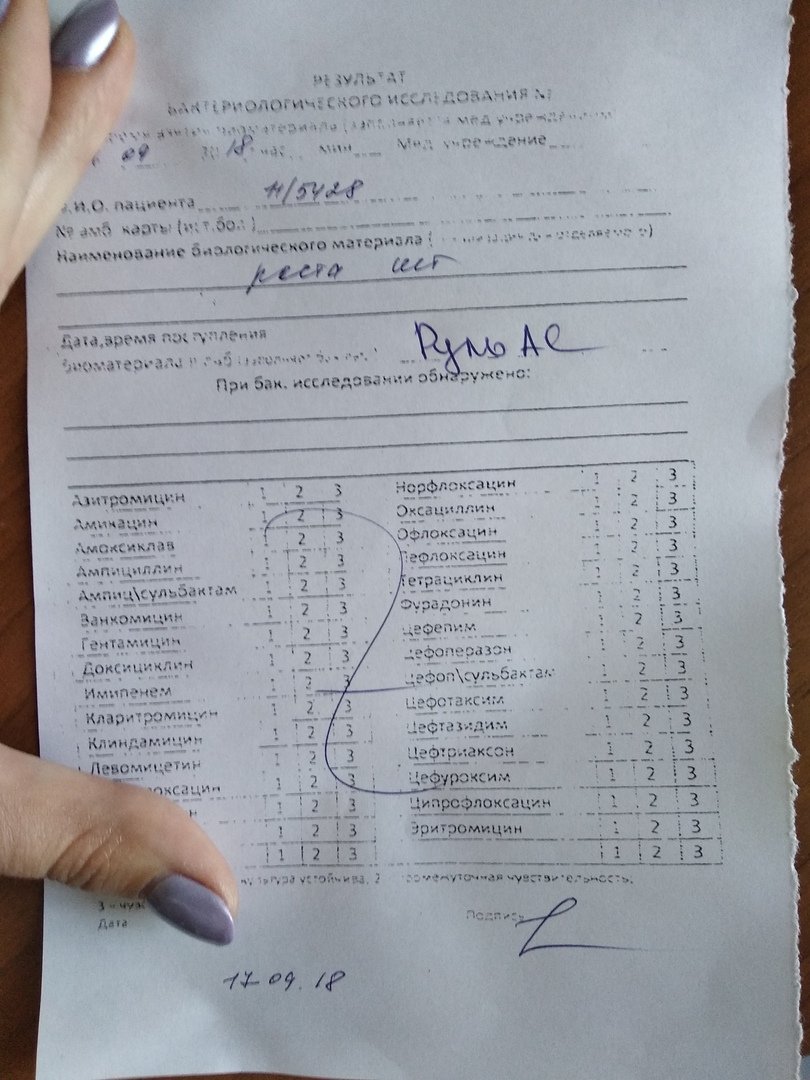 РЕЗУЛЬТАТ
БАКТЕРИОЛОГИЧЕСКОГО ИССЛЕДОВАНИЯ №
09 18 час. мин. Мед. учреждение
Ф.И.О. пациента Н/5428
№ амб. карты (ист.бол.)
Наименование биологического материала (
роста нет
Дата,время поступления
биоматериала в Руль АС
При бак. исследовании обнаружено:
Азитромицин 1 2 3 Норфлоксацин 1 2 3
Амикацин 1 2 3 Оксациллин 1 2 3
Амоксиклав 1 2 3 Офлоксацин 1 2 3
Ампициллин 1 2 3 Пефлоксацин 1 2 3
Ампиц\сульбактам 1 2 3 Тетрациклин 1 2 3
Ванкомицин 1 2 3 Фурадонин 1 2 3
Гентамицин 1 2 3 Цефепим 1 2 3
Доксициклин 1 2 3 Цефоперазон 1 2 3
Имипенем 1 2 3 Цефоп\сульбактам 1 2 3
Кларитромицин 1 2 3 Цефотаксим 1 2 3
Клиндамицин 1 2 3 Цефтазидим 1 2 3
Левомицетин 1 2 3 Цефтриаксон 1 2 3
оксацин 1 2 3 Цефуроксим 1 2 3
1 2 3 Ципрофлоксацин 1 2 3
1 2 3 Эритромицин 1 2 3
1 2 3 1 2 3
культура устойчива, 2 промежуточная чувствительность;
3 – чув
Дата Подпись
17.09.18